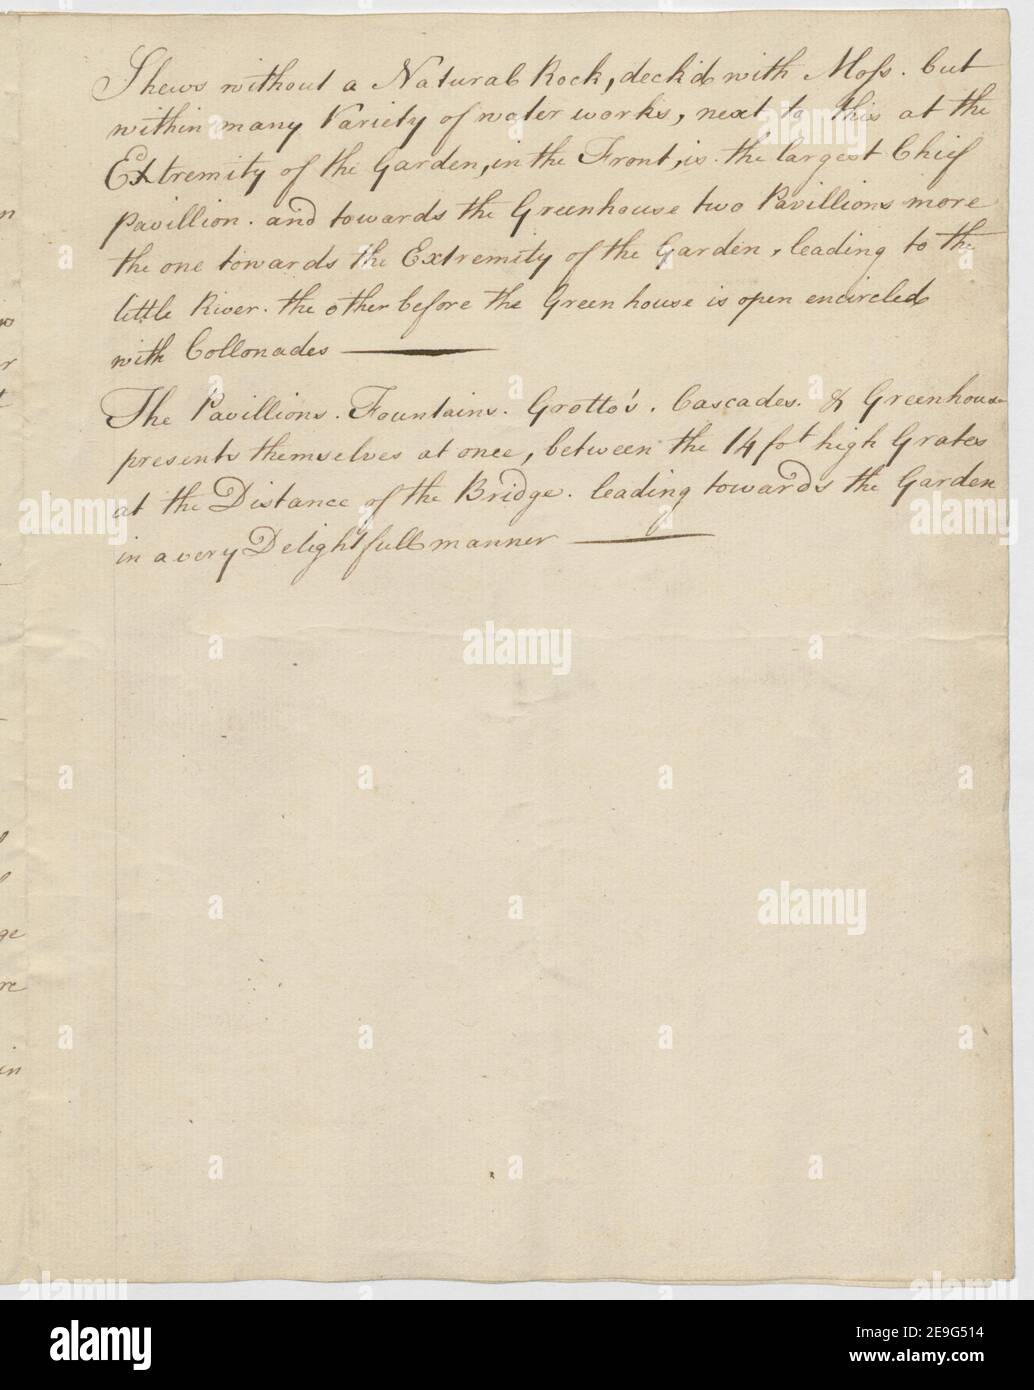 Shews without a Natural Rock, deck'd with Moſs. but
within many Variety of water works, next to this at the
Extremity of the Garden, in the Front, is the largest Chief
Pavillion. and towards the Greenhouse two Pavillions more
the one towards the Extremity of the Garden, leading to the
little River. the other before the Green house is open encircled
with Collonades
The Pavillions. Fountains. Grotto's. Cascades. & Greenhouse
presents themselves at once, between the 14 fot high Grates
at the Distance of the Bridge. leading towards the Garden
in a very Delightfull manner
n
r
ge
re
in
alamy
a
alamy
Image ID: 2E9G514
www.alamy.com